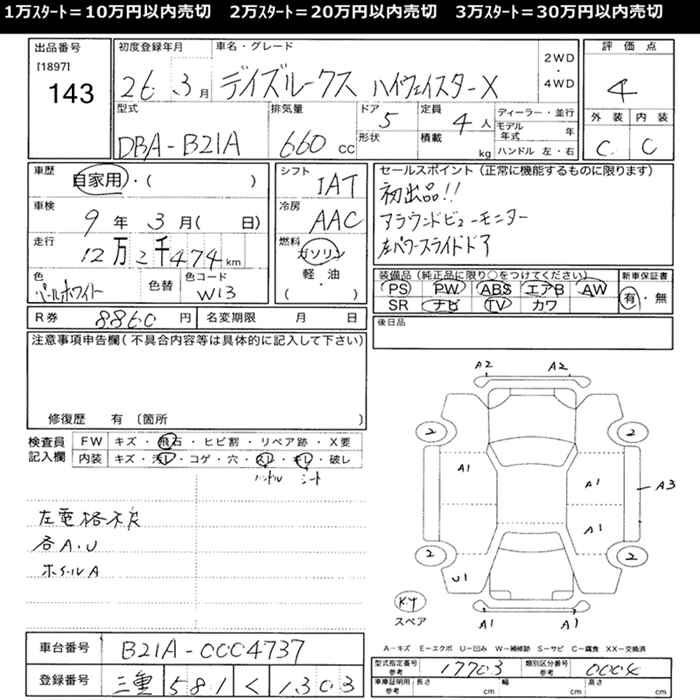 1万スタート＝10万円以内売切　2万スタート＝20万円以内売切　3万スタート＝30万円以内売切
出品番号
[1897]
143
初度登録年月
26 . 3月
車名・グレード
デイズルークス ハイウェイスターX
2WD
・
4WD
評価点
4
外装 内装
C C
型式
DBA-B21A
排気量
660 CC
ドア
5
形状
定員
4人
積載
kg
ディーラー・並行
モデル年式 年
ハンドル 左・右
車歴
自家用・( )
車検
9年 3月( 日)
走行
12万2千474km
色
パールホワイト
色替
色コード
W13
シフト
IAT
冷房
AAC
燃料
ガソリン
軽・油
( )
セールスポイント(正常に機能するものに限ります)
初出品!!
アラウンドビューモニター
左パワースライドドア
装備品(純正品に限り○をつけてください)
PS PW ABS エアB AW
SR ナビ TV カワ
新車保証書
有・無
R券 8860円
名変期限 月 日
後日品
注意事項申告欄(不具合内容等は具体的に記入して下さい)
修復歴 有 〔箇所 〕
検査員
記入欄
FW キズ・飛石・ヒビ割・リペア跡・X要
内装 キズ・汚レ・コゲ・穴・スレ・キレ・破レ
ハンドル シート
左電格不良
各A.U
ホイールA
A2 A2
2 2
A1 A1 A3
A1
2 2
U1
A1 A1
スペア
A－キズ E－エクボ U－凹み W－補修跡 S－サビ C－腐食 XX－交換済
車台番号
B21A-0004737
登録番号
三重 581 く 1303
型式指定番号
参考
17703
類別区分番号
参考
0004
車庫証明用
参考
長さ cm 幅 cm 高さ cm